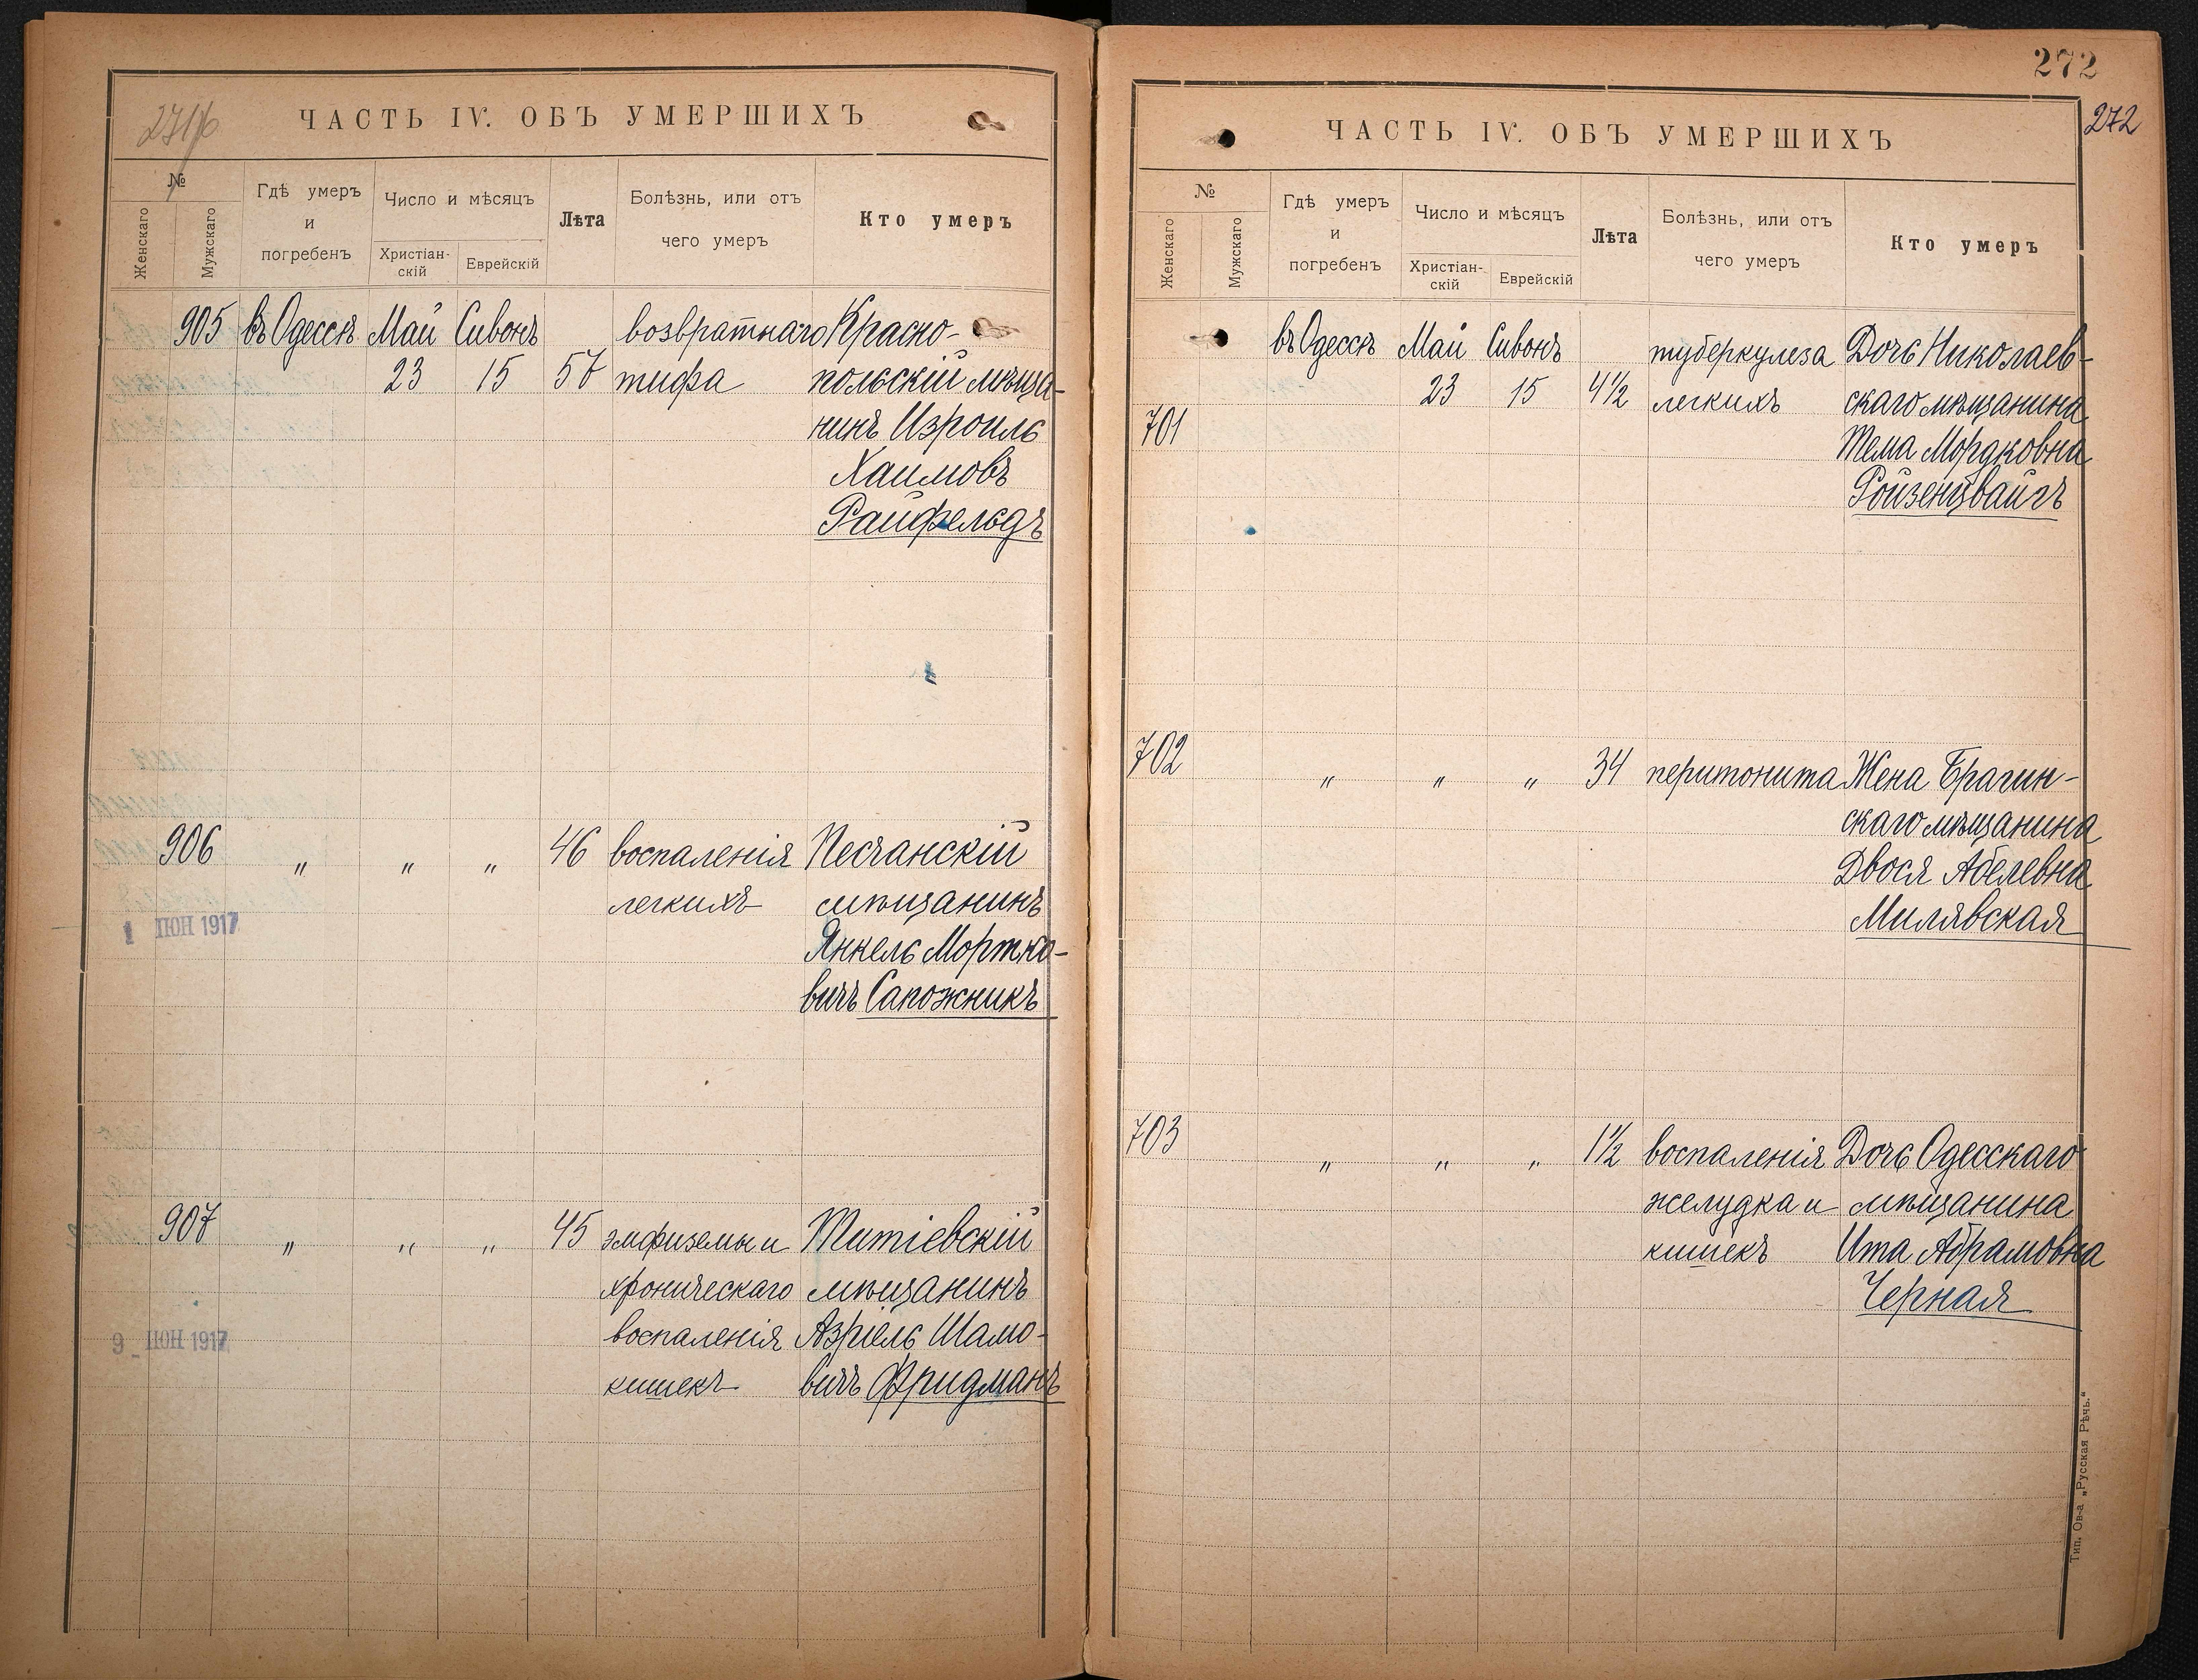 271 об
ЧАСТЬ IV. ОБЪ УМЕРШИХЪ
№
Женскаго
Мужскаго
Гдѣ умеръ
и
погребенъ
Число и мѣсяцъ
Христіан-
скій
Еврейскій
Лѣта
Болѣзнь, или отъ
чего умеръ
Кто умеръ
905 въ Одессѣ Май Сивонъ возвратнаго Красно-
23 15 57 тифа польскій мѣща-
нинъ Изроиль
Хаимовъ
Райфельдъ
906 " " " 46 воспаленія Песчанскій
легкихъ мѣщанинъ
1 ІЮН 1917
Янкель Мортко-
вичъ Сапожникъ
907 " " " 45 эмфиземы и Титіевскій
хроническаго мѣщанинъ
9 - ІЮН 1917
воспаленія Азріель Шамо-
кишекъ вичъ Фридманъ
272
272
ЧАСТЬ IV. ОБЪ УМЕРШИХЪ
№
Женскаго
Мужскаго
Гдѣ умеръ
и
погребенъ
Число и мѣсяцъ
Христіан-
скій
Еврейскій
Лѣта
Болѣзнь, или отъ
чего умеръ
Кто умеръ
въ Одессѣ Май Сивонъ туберкулеза Дочь Николаев-
23 15 4½ легкихъ скаго мѣщанина
701 Тема Мордковна
Ройзенцвайгъ
702 " " " 34 перитонита Жена Брагин-
скаго мѣщанина
Двося Абелевна
Милявская
703 " " " 1½ воспаленія Дочь Одесскаго
желудка и мѣщанина
кишекъ Ита Абрамовна
Черная
Тип. Ов-а „Русская Рѣчь."